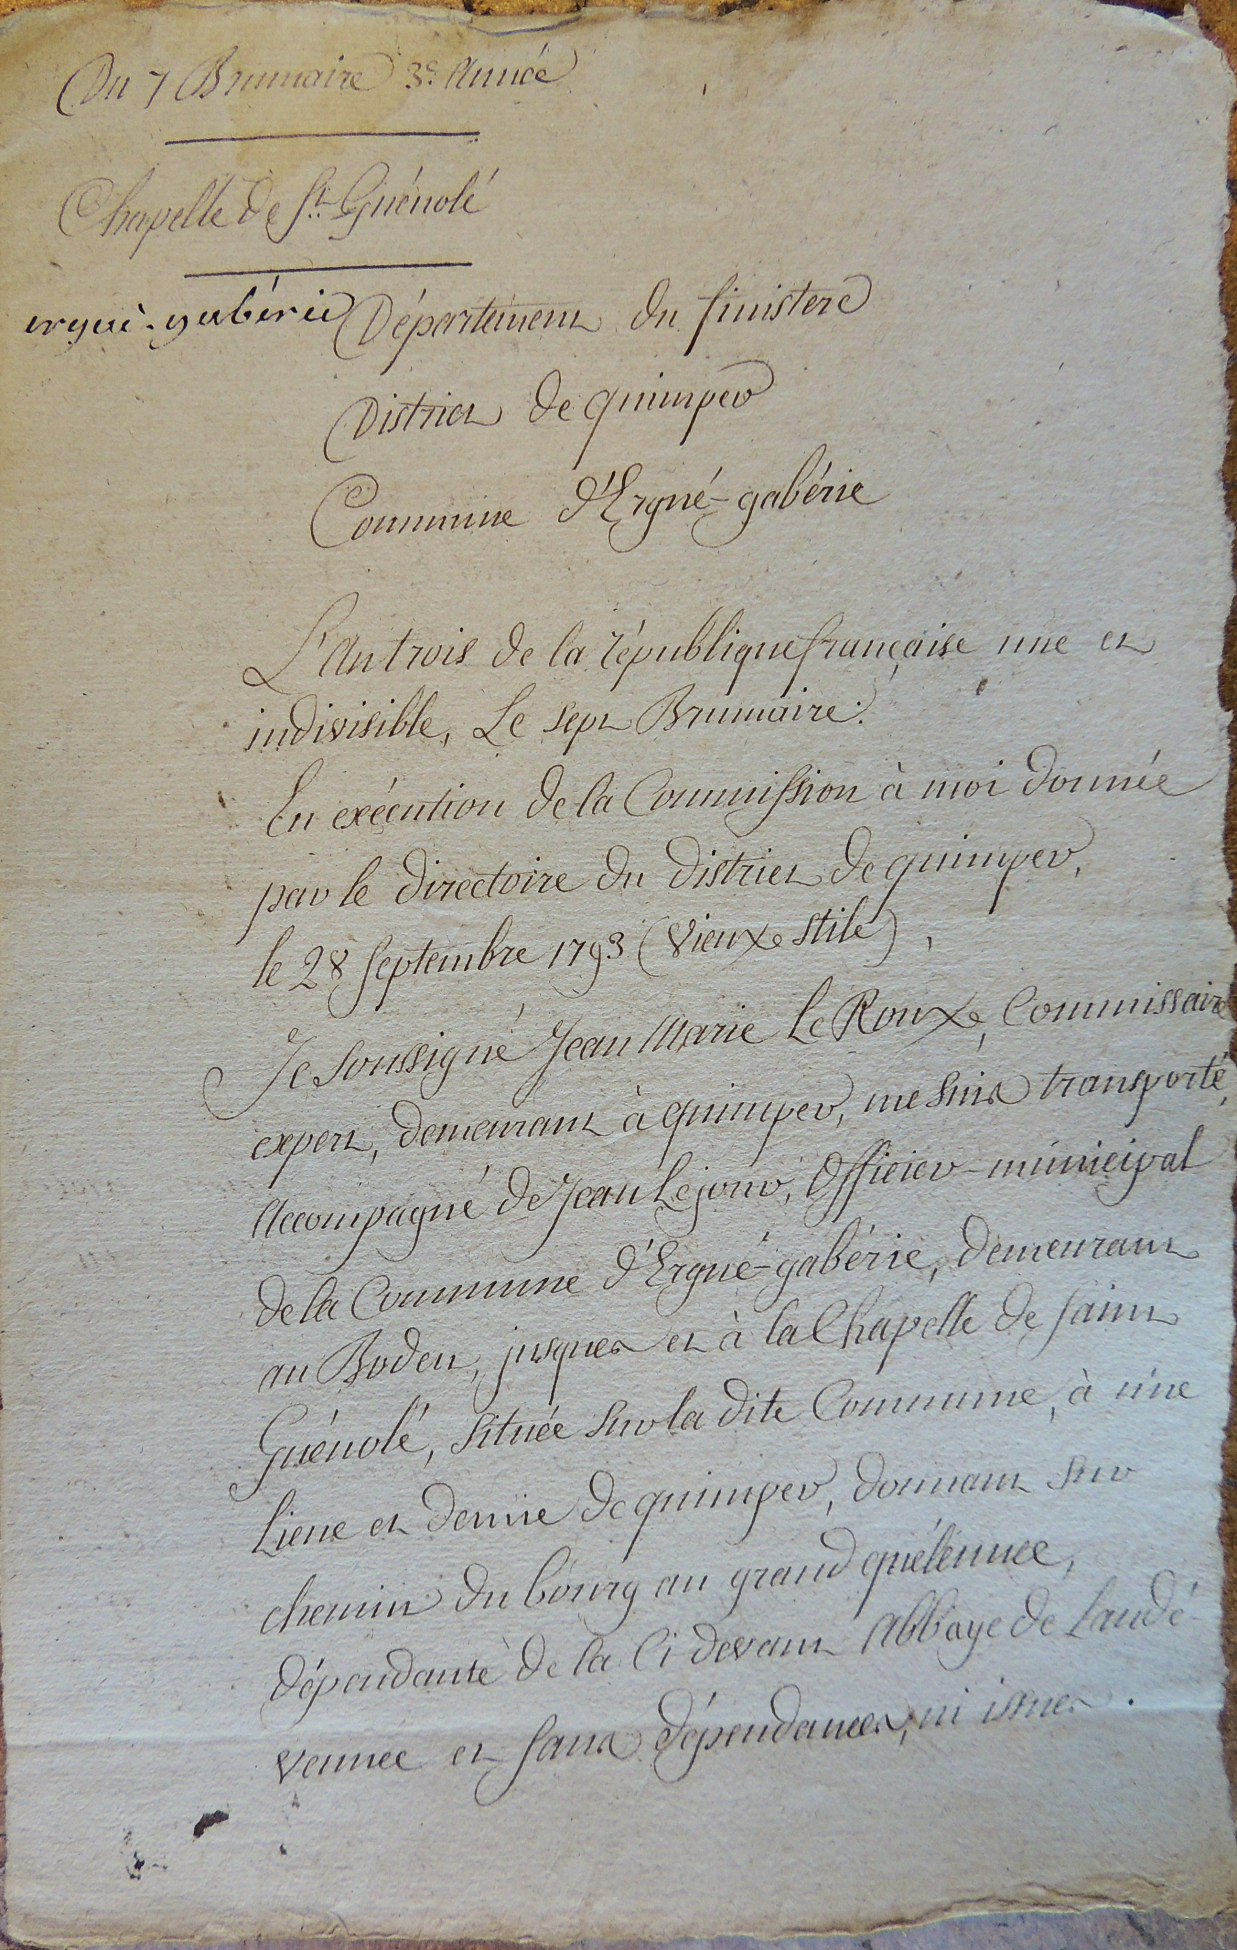 Du 7 Brumaire 3e. Année
Chapelle de St. Guénolé
ergué-gabéric
Département du finistere
District de quimper
Commune d'Ergué-gabéric
L'An trois de la république française une et
indivisible, Le sept Brumaire.
En exécution de la Commission à moi donnée
par le directoire du district de quimper,
le 28 Septembre 1793 (vieux stile),
Je Soussigné Jean Marie Le Roux, Commissaire
expert, demeurant à quimper, me suis transporté,
Accompagné de Jean Lejour, Officier-municipal
de la Commune d'Ergué-gabéric, demeurant
au Boden, jusques et à la Chapelle de saint
Guénolé, située sur la dite Commune, à une
Lieue et demie de quimper, donnant sur
chemin du bourg au grand quélennec,
dépendante de la Ci devant Abbaye de Landé-
vennec et sans dépendances, ni issues.